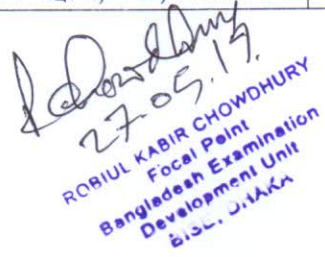 RChowdhury
27.05.19.
ROBIUL KABIR CHOWDHURY
Focal Point
Bangladesh Examination
Development Unit
BISE, DHAKA